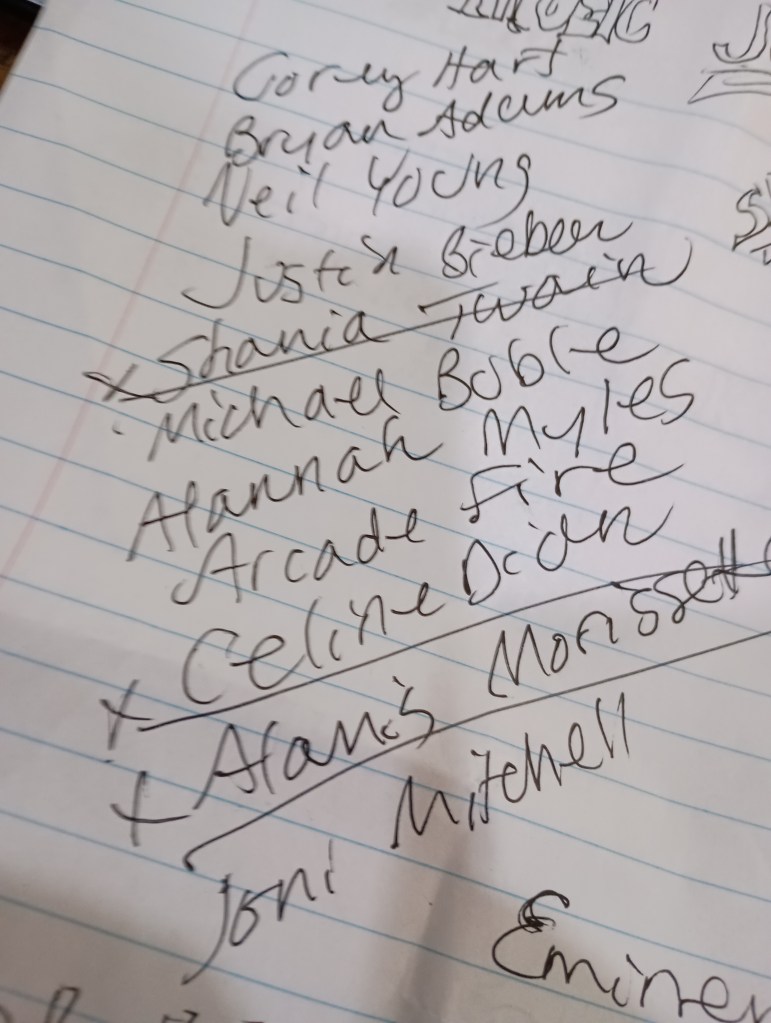 Corey Hart
Bryan Adams
Neil Young
Justin Bieber
x Shania Twain
Michael Buble
Alannah Myles
Arcade Fire
Celine Dion
x Alanis Morissette
+ Joni Mitchell